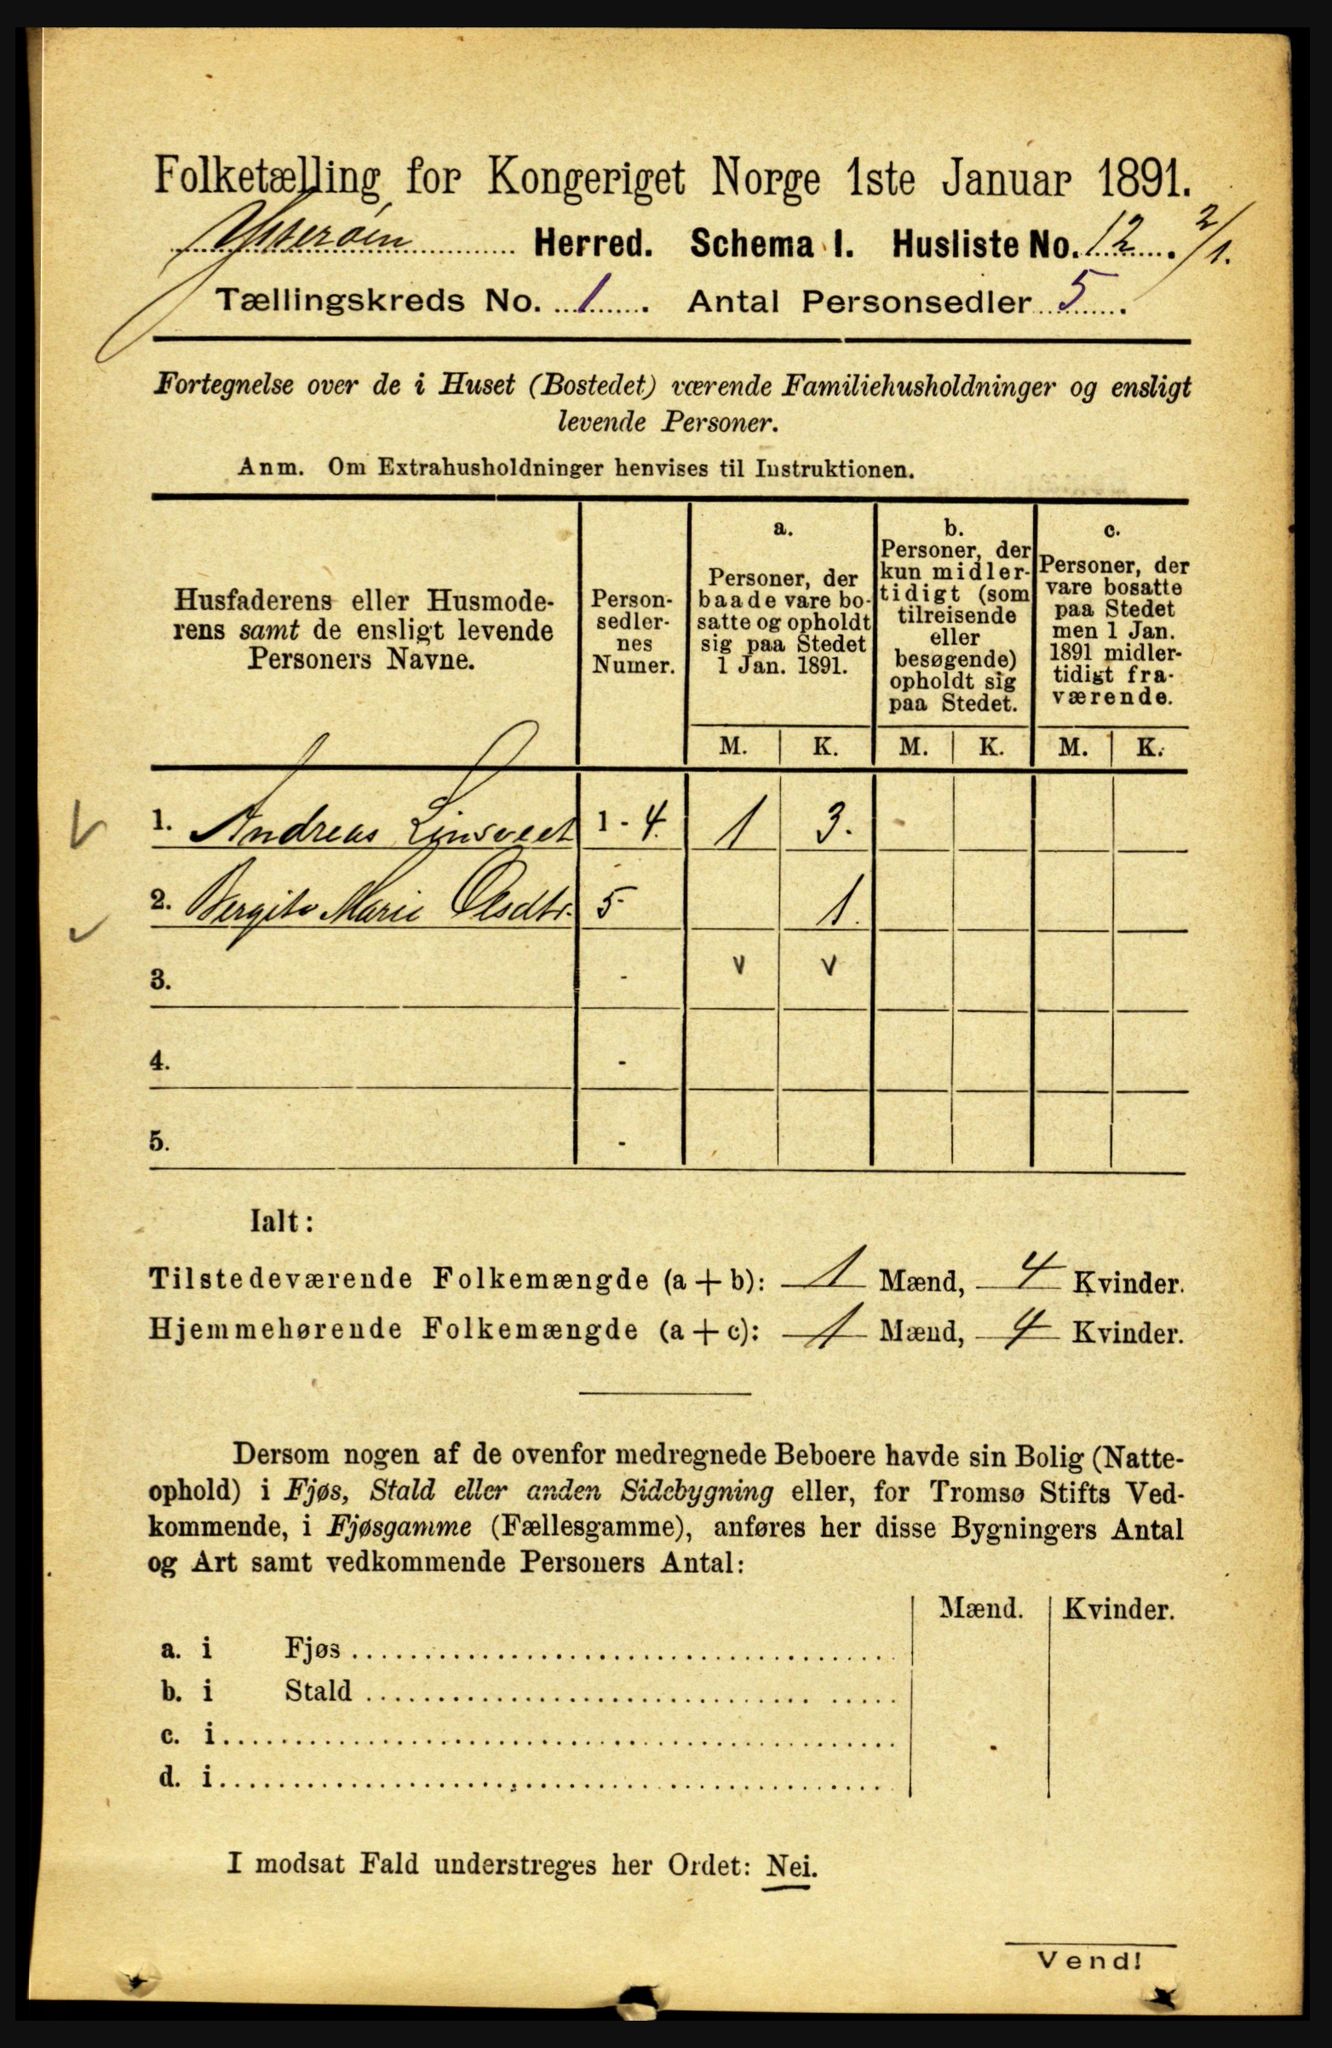 Folketælling for Kongeriget Norge 1ste Januar 1891.
Ytterøen Herred. Schema 1. Husliste No. 12. 2/1.
Tællingskreds No. 1. Antal Personsedler 5.
Fortegnelse over de i Huset (Bostedet) værende Familiehusholdninger og ensligt
levende Personer.
Anm. Om Extrahusholdninger henvises til Instruktionen.
Husfaderens eller Husmode-
rens samt de ensligt levende
Personers Navne.
Person-
sedler-
nes
Numer.
a.
Personer, der
baade vare bo-
satte og opholdt
sig paa Stedet
1 Jan. 1891.
b.
Personer, der
kun midler-
tidigt (som
tilreisende
eller
besøgende)
opholdt sig
paa Stedet.
c.
Personer, der
vare bosatte
paa Stedet
men 1 Jan.
1891 midler-
tidigt fra-
værende.
M. K. M. K. M. K.
1. Andreas 1 - 4. 1 3.
2. Bergite Marie Olsdtr. 5 1.
3. - v v
4. -
5. -
Ialt:
Tilstedeværende Folkemængde (a + b): 1 Mænd, 4 Kvinder.
Hjemmehørende Folkemængde (a + c): 1 Mænd, 4 Kvinder.
Dersom nogen af de ovenfor medregnede Beboere havde sin Bolig (Natte-
ophold) i Fjøs, Stald eller anden Sidebygning eller, for Tromsø Stifts Ved-
kommende, i Fjøsgamme (Fællesgamme), anføres her disse Bygningers Antal
og Art samt vedkommende Personers Antal:
Mænd. Kvinder.
a. i Fjøs
b. i Stald
c. i
d. i
I modsat Fald understreges her Ordet: Nei.
Vend!